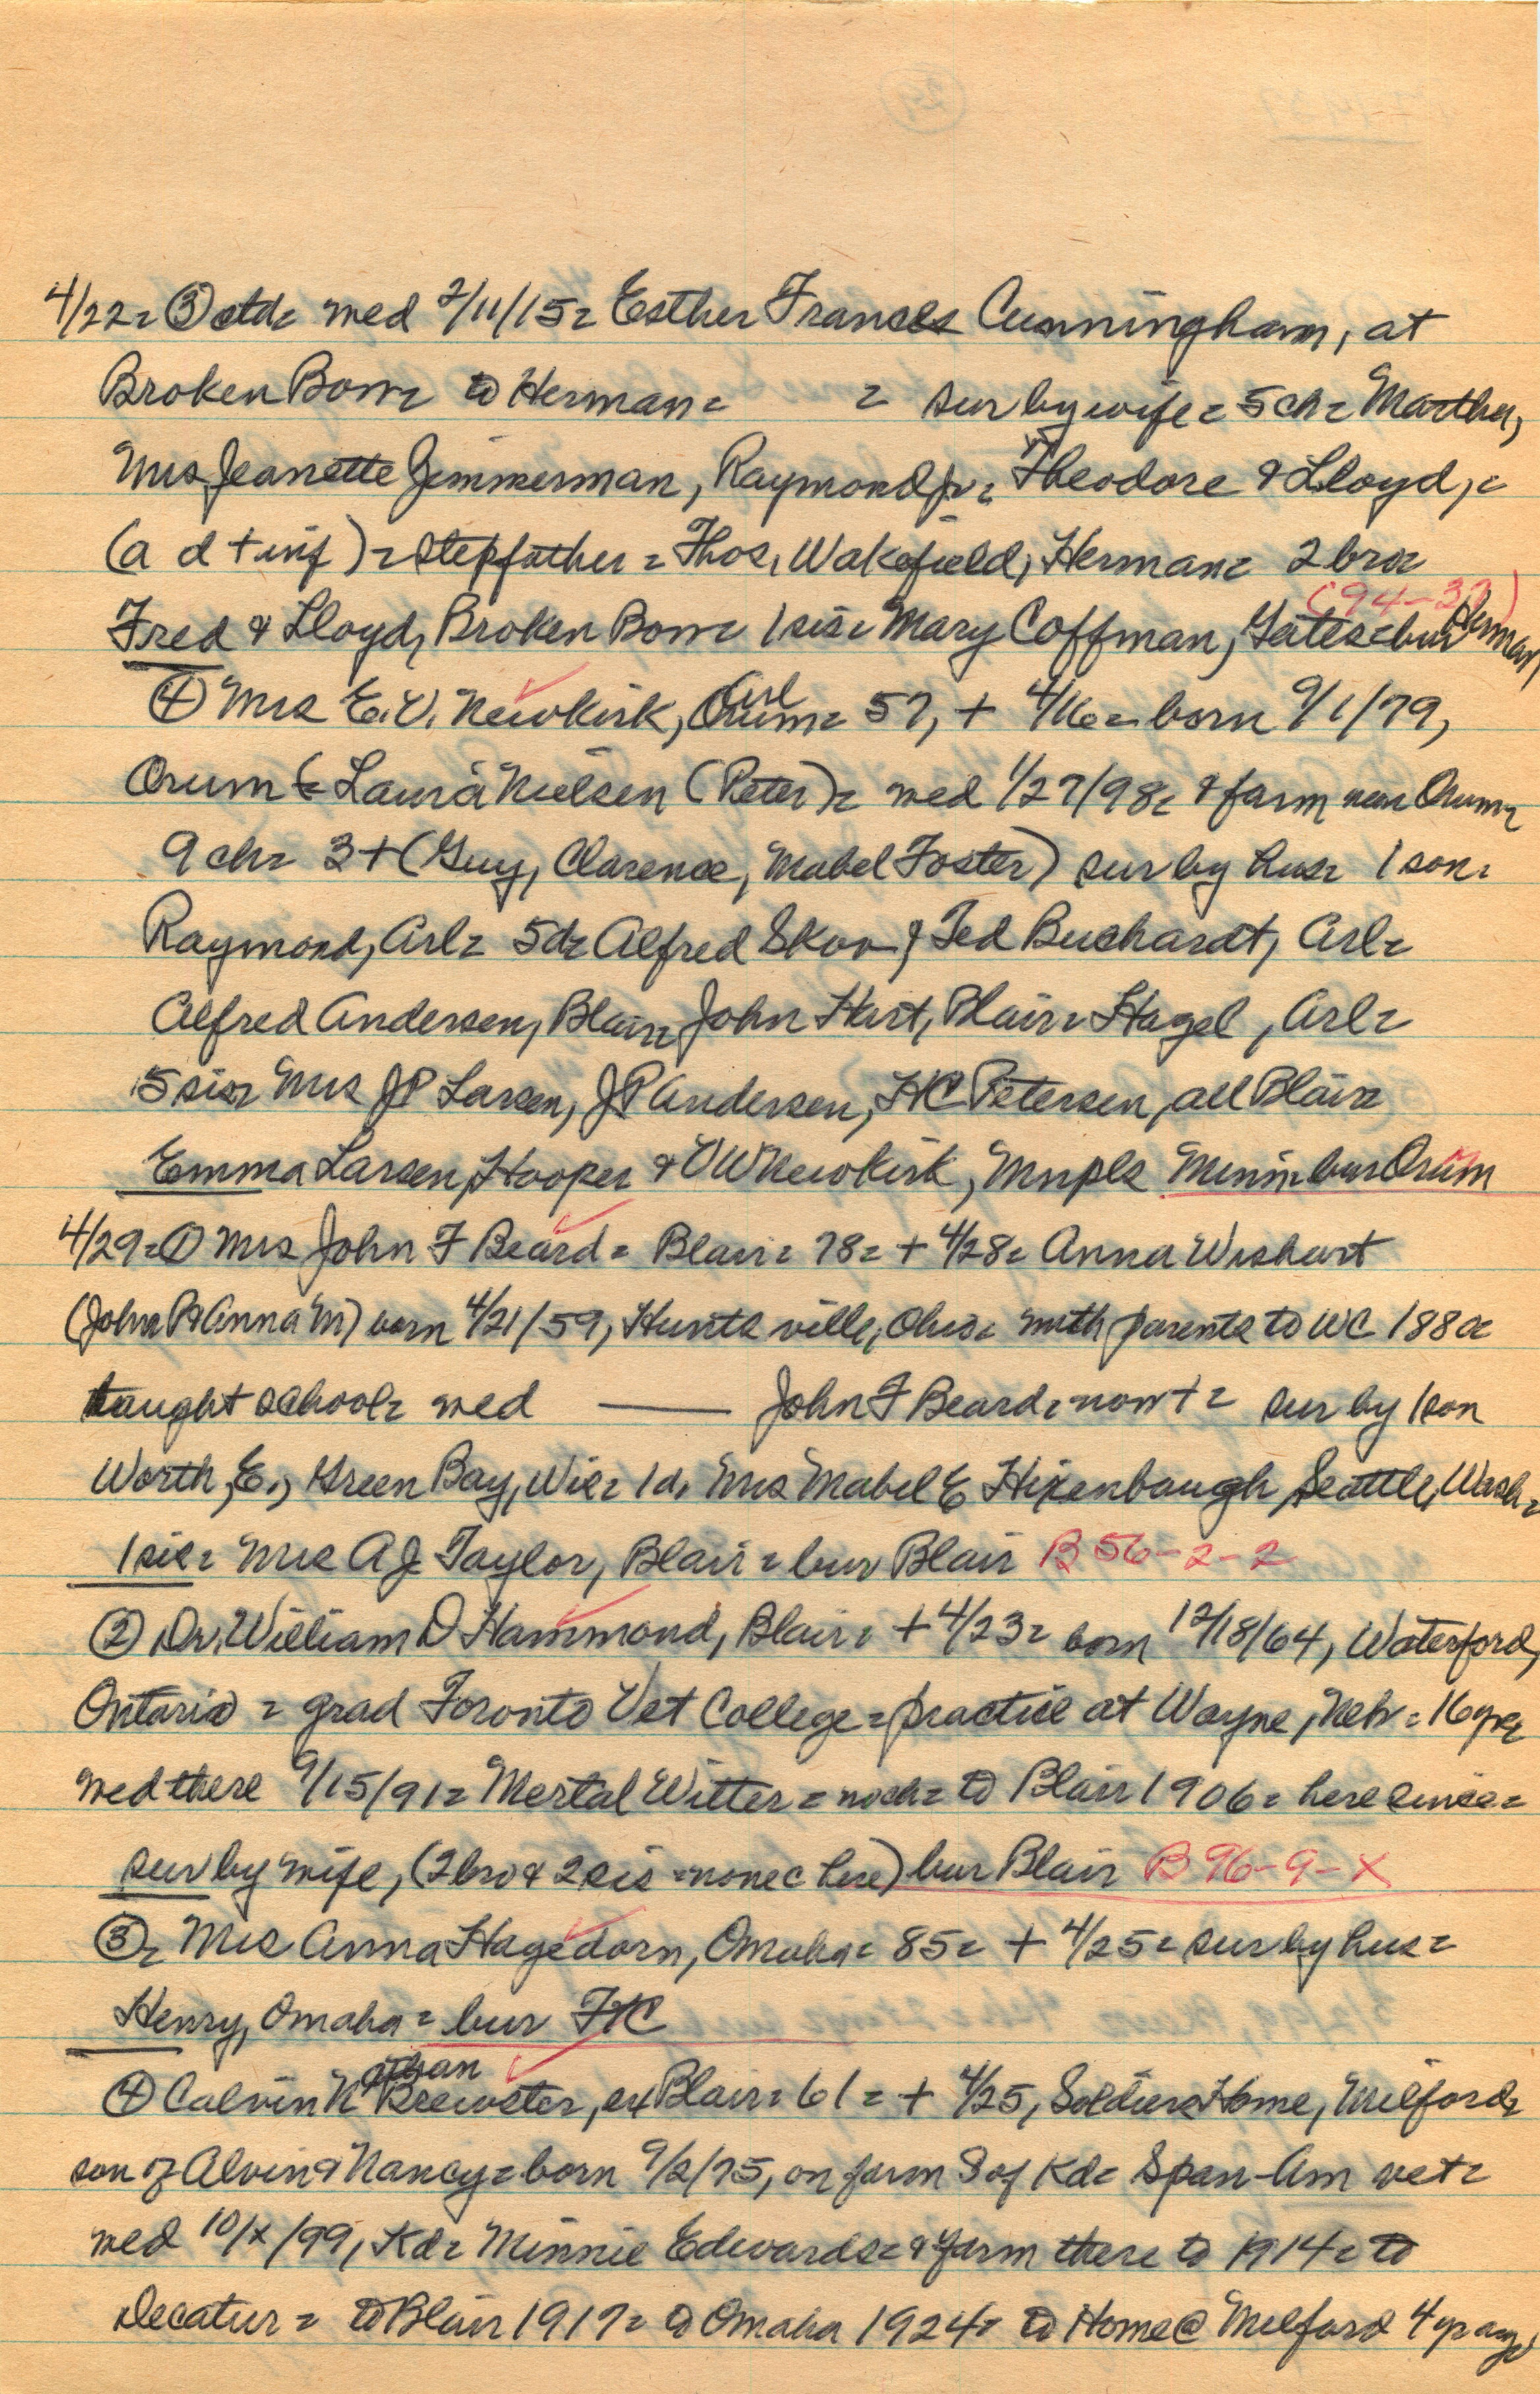 4/22= ③ ctd= wed 2/11/15= Esther Frances Cunningham, at
Broken Bow= to Herman= = sur by wife= 5 ch= Martha,
Mrs Jeanette Zimmerman, Raymond Jr= Theodore & Lloyd,=
(a d + inf)= stepfather= Thos. Wakefield, Herman= 2 bro=
(94-37)
Fred & Lloyd, Broken Bow= 1 sis= Mary Coffman, Gates= bur Herman
④ Mrs E.V. Newkirk, Orum= Arl 57, + 4/16= born 9/1/79,
Orum = Laura Nielsen (Peter)= wed 1/27/98= & farm near Orum=
9 ch= 3+ (Guy, Clarence, Mabel Foster) sur by hus= 1 son=
Raymond, Arl= 5d= Alfred Skov & Ted Buchardt, Arl=
Alfred Andersen, Blair= John Hart, Blair= Hazel , Arl=
5 sis= Mrs JP Larsen, JP Andersen, HC Petersen, all Blair=
Emma Larsen, Hooper & OW Newkirk, Mnpls Minn= bur Orum
4/29= ① Mrs John F Beard= Blair= 78= + 4/28= Anna Wishart
(John P & Anna M) born 4/21/59, Huntsville, Ohio= with parents to WC 188
taught school= wed —— John F Beard= now += sur by 1 son
Worth, E., Green Bay, Wis= 1 d. Mrs Mabel E Hixenbaugh, Seattle, Wash=
1 sis= Mrs AJ Taylor, Blair= bur Blair B 56-2-2
② Dr. William D Hammond, Blair= + 4/23= born 12/18/64, Waterford,
Ontario = grad Toronto Vet College= practice at Wayne, Neb= 16 yrs
wed there 9/15/91= Mertal Witter= no ch= to Blair 1906= here since=
sur by wife, (2 bro & 2 sis = none c here) bur Blair B 96-9-X
③= Mrs Anna Hagedorn, Omaha= 85= + 4/25= sur by hus=
Henry, Omaha= bur FC
④ Calvin Nathan Brewster, ex Blair= 61= + 4/25, Soldiers Home, Milford=
son of Alvin & Nancy= born 9/2/75, on farm S of Kd= Span-Am vet=
wed 10/x/99, Kd= Minnie Edwards= & farm there to 1914= to
Decatur= to Blair 1917= to Omaha 1924= to Home @ Milford 4 yr ago